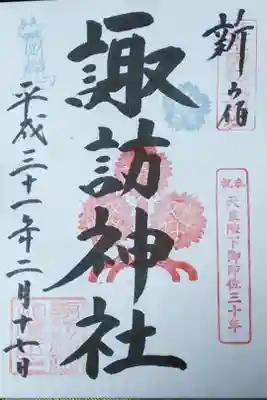 奉祝
天皇陛下御即位三十年
諏訪神社
平成三十一年二月十七日